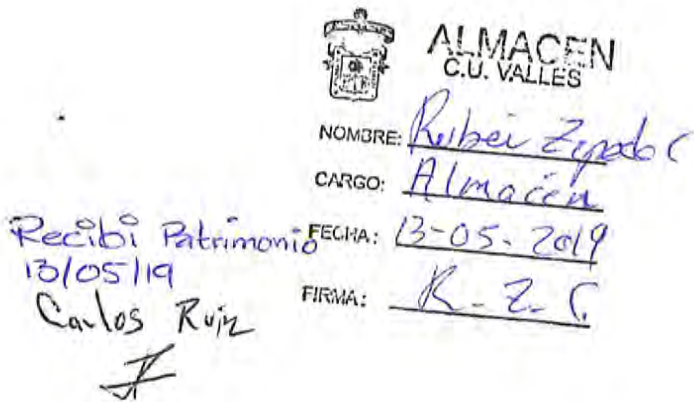 ALMACEN
C.U. VALLES
NOMBRE: Ruben Zepeda C
CARGO: Almacén
FECHA: 13-05-2019
FIRMA: R-Z-C
Recibi Patrimonio
13/05/19
Carlos Ruiz